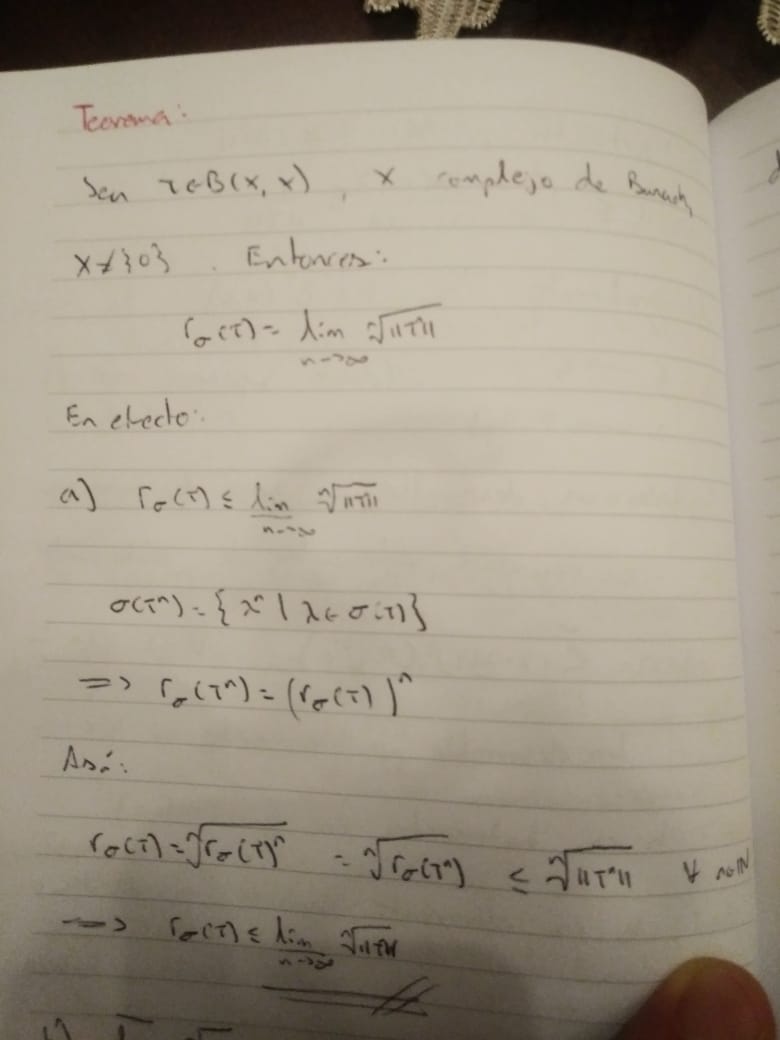 Teorema:
Sea T∈B(X,X), X complejo de Banach,
X≠{0}. Entonces:
r_σ(T) = lim_{n→∞} ⁿ√‖Tⁿ‖
En efecto:
a) r_σ(T) ≤ \underline{lim}_{n→∞} ⁿ√‖Tⁿ‖
σ(Tⁿ) = {λⁿ | λ∈σ(T)}
=> r_σ(Tⁿ) = (r_σ(T))ⁿ
Así:
r_σ(T) = ⁿ√r_σ(T)ⁿ = ⁿ√r_σ(Tⁿ) ≤ ⁿ√‖Tⁿ‖ ∀ n∈ℕ
=> r_σ(T) ≤ \underline{lim}_{n→∞} ⁿ√‖Tⁿ‖